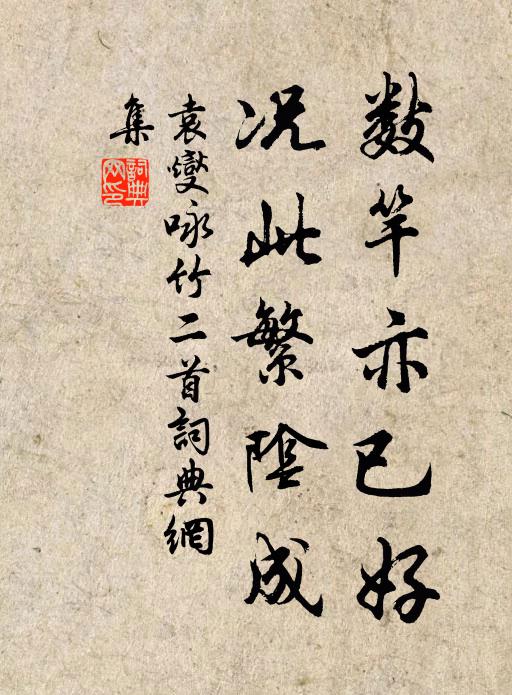 数竿亦已好
况此繁陰成
袁燮咏竹二首詞典網
集
詞典网印